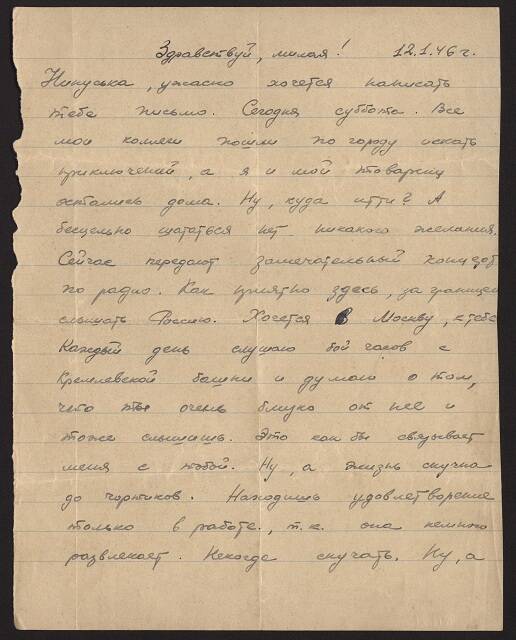 Здравствуй, милая! 12.1.46 г.
Нинуська, ужасно хочется написать
тебе письмо. Сегодня суббота. Все
мои коллеги пошли по городу искать
приключений, а я и мой товарищ
остались дома. Ну, куда итти? А
бесцельно шататься нет никакого желания.
Сейчас передают замечательный концерт
по радио. Как приятно здесь, за границей
слышать Россию. Хочется в Москву, к тебе
Каждый день слушаю бой часов с
Кремлевской башни и думаю о том,
что ты очень близко от нее и
тоже слышишь. Это как бы связывает
меня с тобой. Ну, а жизнь скучна
до чортиков. Находишь удовлетворение
только в работе., т.к. она немного
развлекает. Некогде скучать. Ну, а